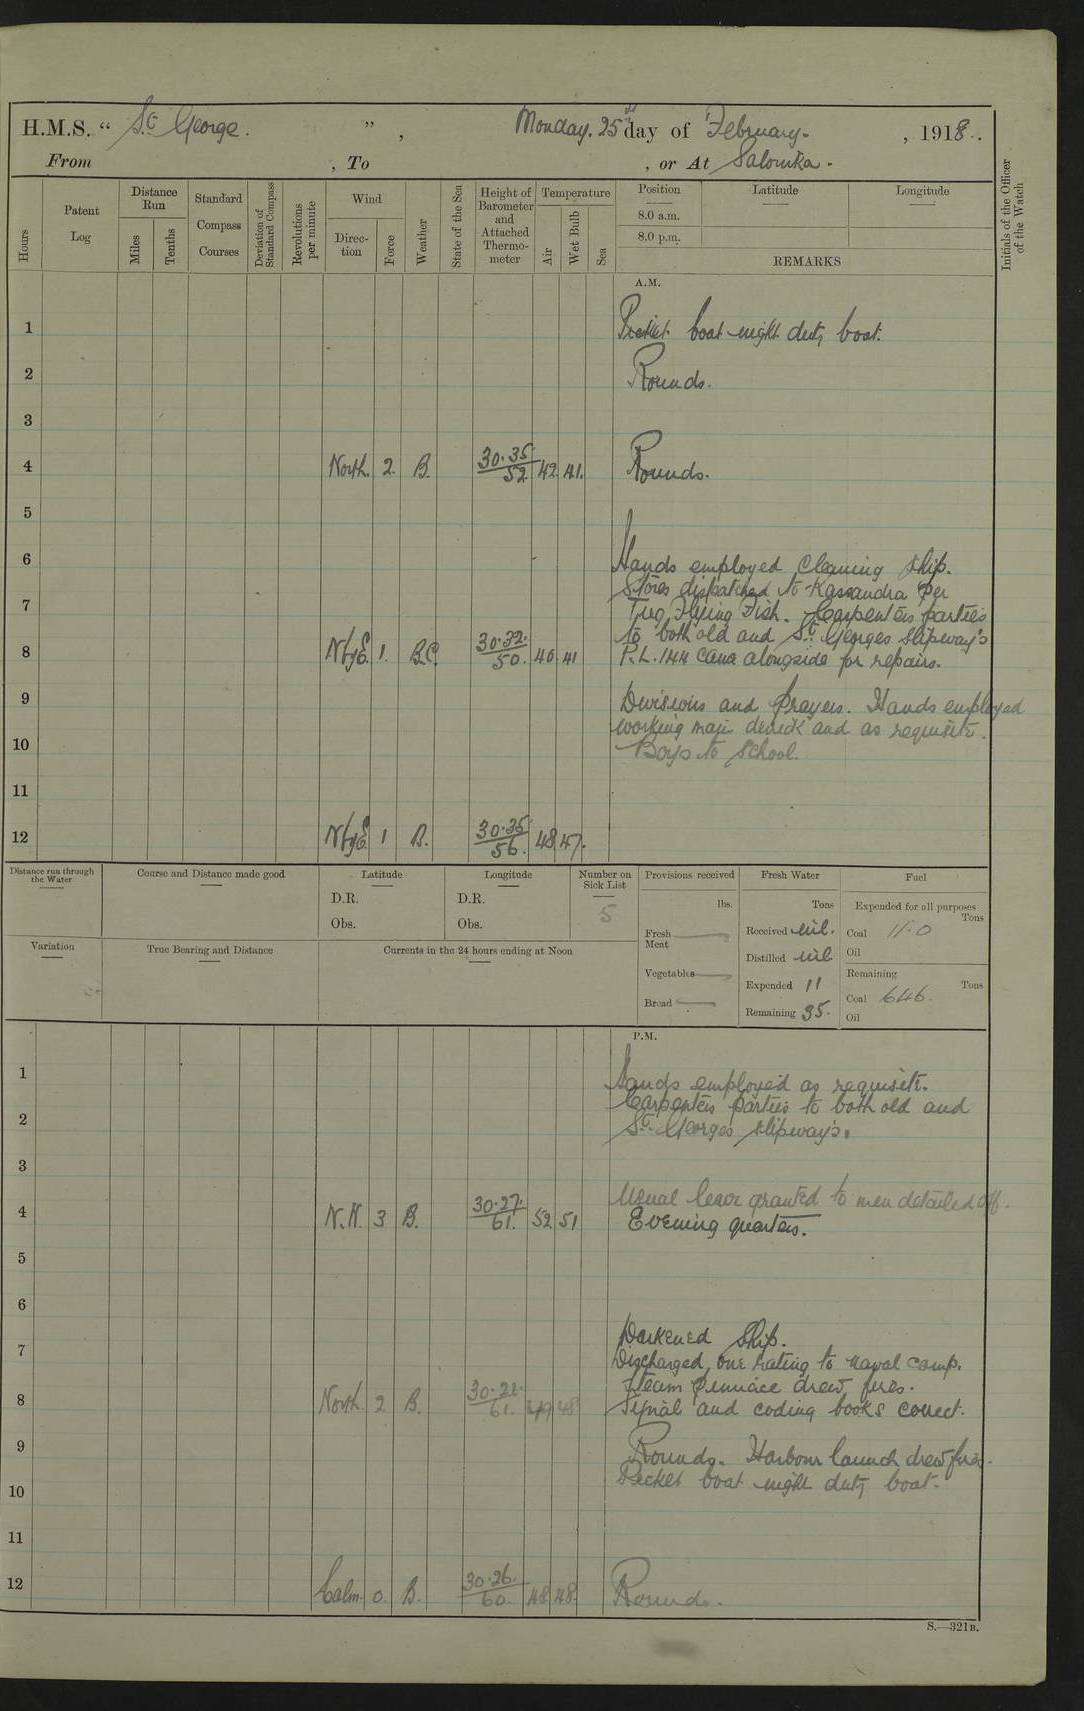 H.M.S. “ St George. ”, Monday. 25th day of February. , 1918..
From , To , or At Salonika.
Hours
Patent Log
Distance Run
Miles
Tenths
Standard Compass Courses
Deviation of Standard Compass
Revolutions per minute
Wind
Direc-tion
Force
Weather
State of the Sea
Height of Barometer and Attached Thermo-meter
Temperature
Air
Wet Bulb
Sea
Position
8.0 a.m.
8.0 p.m.
Latitude
Longitude
REMARKS
Initials of the Officer of the Watch
A.M.
1 Picket boat night duty boat.
2 Rounds.
3
4 North. 2. B. 30.35/52 42 41. Rounds.
5
6 Hands employed cleaning ship.
Stores dispatched to Kassandra per
7 Tug Flying Fish. Carpenters parties
to both old and St. Georges slipway's
8 NbyE 1. BC. 30.32./50. 46 41 P.L. 144 came alongside for repairs.
9 Divisions and prayers. Hands employed
working main derrick and as requisite.
10 Boys to School.
11
12 NbyE 1 B. 30.35/56. 48 47.
Distance run through the Water
Course and Distance made good
Latitude
D.R.
Obs.
Longitude
D.R.
Obs.
Number on Sick List
5
Provisions received
lbs.
Fresh Meat
Vegetables
Bread
Fresh Water
Tons
Received nil.
Distilled nil
Expended 11
Remaining 35.
Fuel
Expended for all purposes
Tons
Coal 11.0
Oil
Remaining
Tons
Coal 646.
Oil
Variation
True Bearing and Distance
Currents in the 24 hours ending at Noon
P.M.
1 Hands employed as requisite.
Carpenters parties to both old and
2 St. Georges slipway's.
3
Usual leave granted to men detailed off.
4 N.W. 3 B. 30.27./61. 52 51 Evening quarters.
5
6
Darkened Ship.
7 Discharged one rating to naval camp.
Steam pinnace drew fires.
8 North. 2 B. 30.21./61. 49 48 Signal and coding books correct.
9 Rounds. Harbour launch drew fires.
Picket boat night duty boat.
10
11
12 Calm. 0. B. 30.26./60. 48 48. Rounds.
S.—321B.